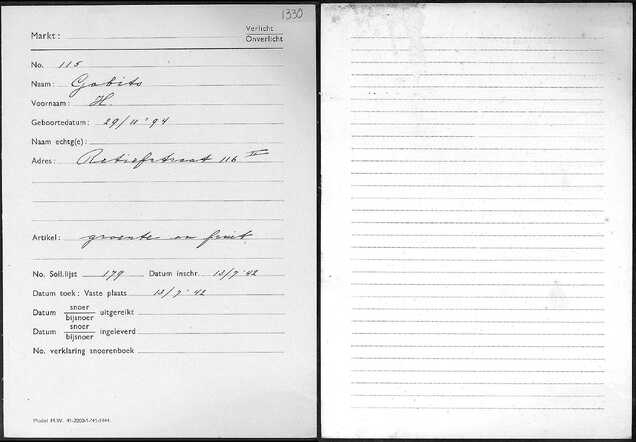 1330
Markt : Verlicht
Onverlicht
No. 115
Naam : Gobits
Voornaam : H.
Geboortedatum : 29/11 '94
Naam echtg(e) :
Adres : Retiefstraat 116 II
Artikel : groente en fruit
No. Soll.lijst 179 Datum inschr. 13/7 '42
Datum toek : Vaste plaats 13/7 '42
Datum snoer
bijsnoer uitgereikt
Datum snoer
bijsnoer ingeleverd
No. verklaring snoerenboek
Model M.W.